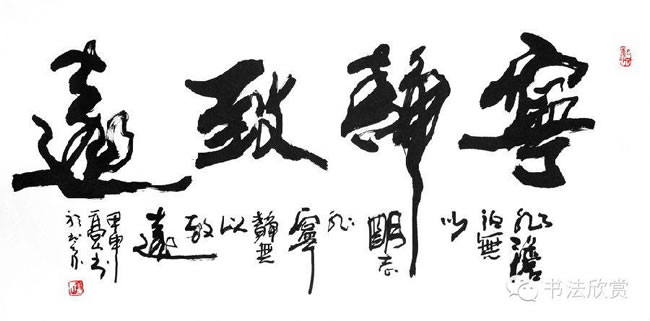 寧靜致遠
非澹泊無以明志非寧靜無以致遠
甲申
书法欣赏